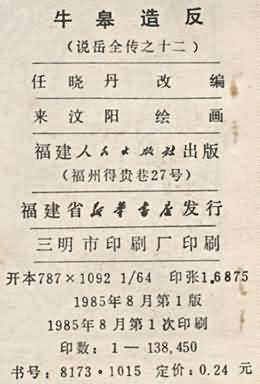 牛皋造反
(说岳全传之十二)
任晓丹 改编
来汶阳 绘画
福建人民出版社出版
(福州得贵巷27号)
福建省新华书店发行
三明市印刷厂印刷
开本787×1092 1/64 印张1.6875
1985年8月第1版
1985年8月第1次印刷
印数：1—138,450
书号：8173·1015 定价：0.24元